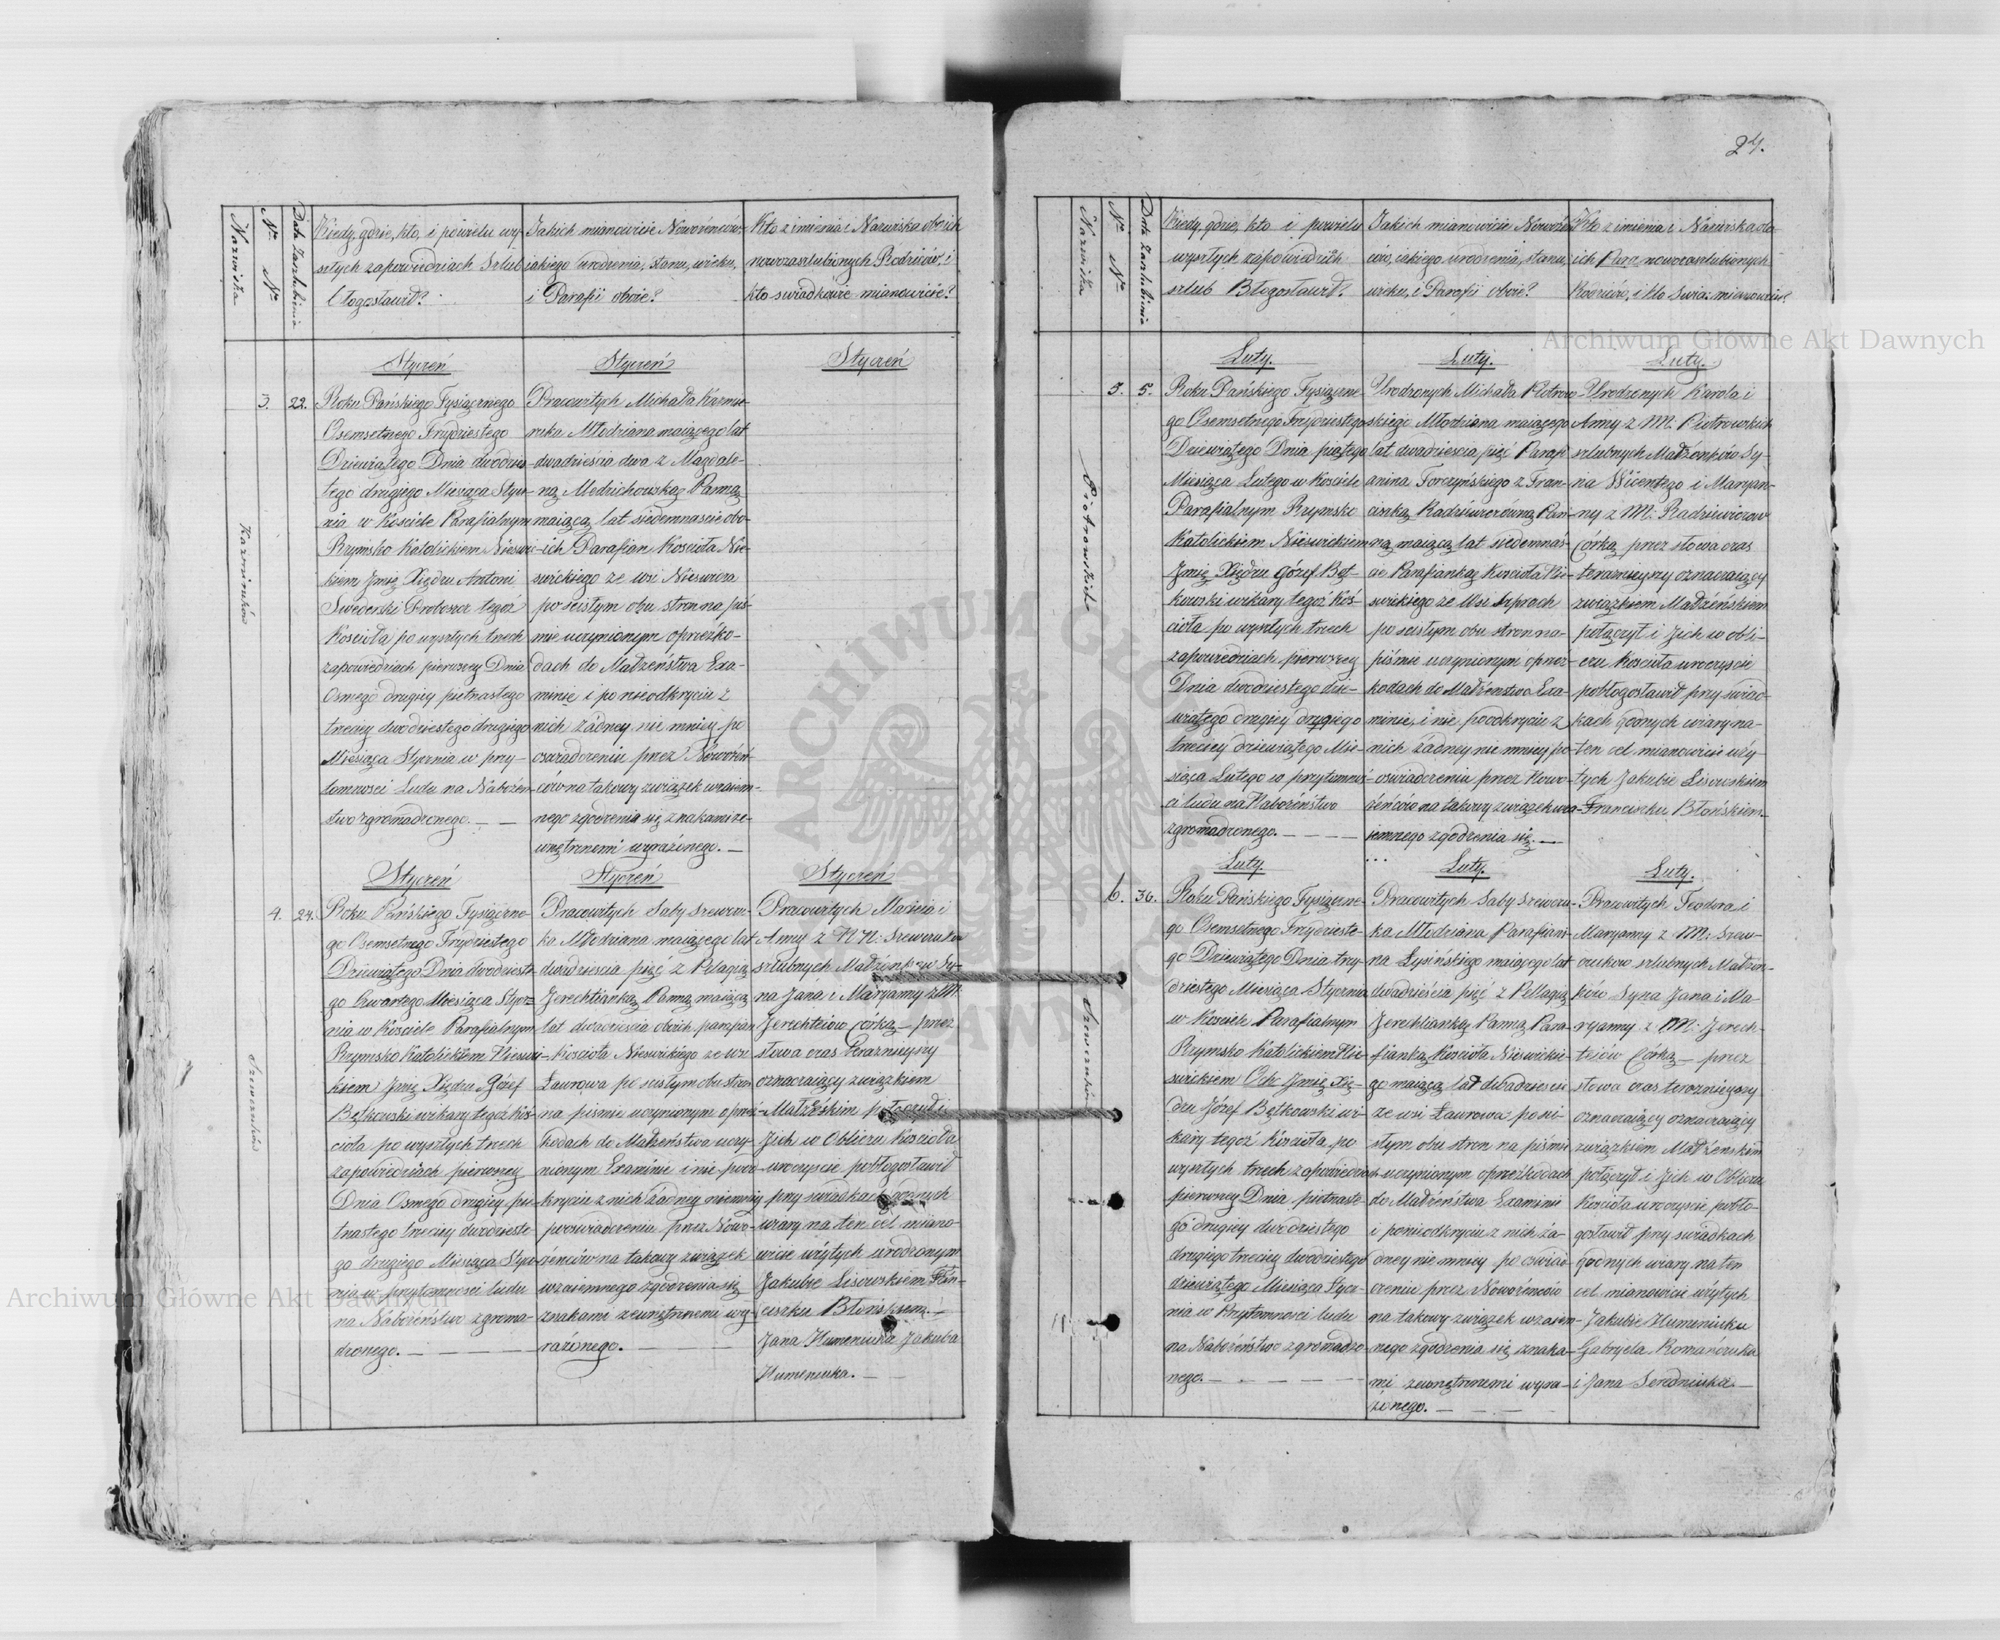 24.
Nazwiska
Nr Nr
Data Zaszlubienia
Kiedy, gdzie, kto, i po wielu wy-
szłych zapowiedziach Szlub
błogosławił?
Jakich mianowicie Nowożeńców
jakiego urodzenia, stanu, wieku,
i Parafii oboie?
Kto z imienia i Nazwiska oboich
nowozaszlubionych Rodziców, i
kto swiadkowie mianowicie?
Styczeń
Styczeń
Styczeń
3.
22.
Roku Pańskiego Tysiącznego
Osemsetnego Trzydziestego
Dziewiątego Dnia dwudzies-
tego drugiego Miesiąca Stycz-
nia w Kościele Parafialnym
Rzymsko Katolickiem Nieswi-
kiem Jmię Xiędzu Antoni
Swederski Proboszcz tegoż
Kościoła po wyszłych trzech
zapowiedziach pierwszey Dnia
Osmego drugiey pietnastego
trzeciey dwódziestego drugiego
Miesiąca Stycznia w przy-
tomnosci Ludu na Nabożeń-
stwo zgromadzonego. — —
Pracowitych Michała Kazmie-
ruka Młodziana maiącego lat
dwadzieścia dwa z Magdale-
ną Modrichowską Panną
maiącą lat siedemnascie obo-
ich Parafian Koscioła Nie-
swickiego ze wsi Nieswicza
po scisłym obu stron na piś-
mie uczynionym o przeszko-
dach do Małżeństwa Exa-
minie i po nieodkryciu z
nich żádney nie mniey po
oswiadczeniu przez Nowożeń-
ców na takowy związek wzaiem-
nego zgodzenia się znakami ze-
wnętrznemi wyrażonego. —
Kazmiruków
Styczeń
Styczeń
Styczeń
4.
24.
Roku Pańskiego Tysiączne-
go Osemsetnego Trzydziestego
Dziewiątego Dnia dwudzieste-
go Czwartego Miesiąca Stycz-
nia w Kościele Parafialnym
Rzymsko Katolickiem Nieswi-
kiem Jmię Xiędzu Józef
Bętkowski wikary tegoż Koś-
cioła po wyszłych trzech
zapowiedziach pierwszey
Dnia Osmego drugiey pie-
tnastego trzeciey dwódzieste-
go drugiego Miesiąca Stycz-
nia w przytomnosci ludu
na Nabożeństwo zgroma-
dzonego. — — —
Pracowitych Saby Szewczu-
ka Młodziana maiącego lat
dwadziescia pięć z Pelagią
Jerechtianką Panną maiącą
lat dwadziescia oboich parafian
Koscioła Nieswickiego ze wsi
Ławrowa po scisłym obu stron
na pismie uczynionym o przesz-
kodach do Małżeństwa uczy-
nionym Examinie i nie pood-
kryciu z nich żádney niemniey
przeswiadczenia przez Nowo-
żeńców na takowy związek
wzaiemnego zgodzenia się
znakami zewnętrznemi wy-
rażonego. — —
Pracowitych Macieia i
Anny z NN: Szewczuków
szlubnych Małżonków Sy-
na Jana i Maryanny z M.
Jerechteiów Córką przez
słowa oraz teraznieyszy
oznaczaiący związkiem
Małżeńskim połączył i
Jich w Obliczu Kościoła
uroczyscie pobłogosławił
przy swiadkach godnych
wiary na ten cel miano-
wicie użytych urodzonym
Jakubie Lisowskiem Fran-
ciszku Błońskiem. —
Jana Humeniuka Jakuba
Humeniuka. —
Szewczuków
Nazwiska
Nr Nr
Data Zaszlubienia
Kiedy, gdzie, kto i po wielu
wyszłych zapowiedzich
szlub Błogosławił?
Jakich mianowicie Nowożeń-
ców, jakiego urodzenia, stanu,
wieku, i Parafii oboie?
Kto z imienia i Nazwiska obo-
ich Para nowozaszlubionych
Rodziców, i kto Swiad: mianowicie?
Luty.
Luty.
Luty.
5.
5.
Roku Pańskiego Tysiączne-
go Osemsetnego Trzydziestego
Dziewiątego Dnia piątego
Miesiąca Lutego w Kościele
Parafialnym Rzymsko
Katolickiem Nieswickiem
Jmię Xiędzu Józef Bęt-
kowski wikary tegoż Koś-
cioła po wyszłych trzech
zapowiedziach pierwszey
Dnia dwódziestego dzie-
wiątego drugiey drugiego
trzeciey dziewiątego Mie-
siąca Lutego w przytomnoś-
ci ludu na Nabożeństwo
zgromadzonego. — — —
Urodzonych Michała Piotrow-
skiego Młodziana maiącego
lat dwadziescia pięć Parafi
anina Torczyńskiego z Fran-
ciszką Radziwizerówną Pan-
ną maiącą lat siedemnaś-
cie Parafianką Koscioła Nie-
swickiego ze Wsi
po scisłym obu stron na
piśmie uczynionym o przesz-
kodach do Małżenstwa Exa-
minie i nie poodkryciu z
nich żádney nie mniey po
oswiadczeniu przez Nowo-
żeńców na takowy związek wza-
jemnego zgodzenia się. —
Urodzonych Karola i
Anny z M. Piotrowskich
szlubnych Małżonków Sy-
na Wicentego i Maryan-
ny z M: Radziwiczow
Corką przez słowa oraz
teraznieyszy oznaczaiący
związkiem Małżeńskiem
połączył i Jich w obli-
czu Koscioła uroczyscie
pobłogosławił przy swiad-
kach godnych wiary na
ten cel mianowicie uży-
tych Jakubie Lisowskiem
Franciszku Błońskiem
Piotrowskich
Luty.
Luty.
Luty.
6.
30.
Roku Pańskiego Tysiączne-
go Osemsetnego Trzydzieste-
go Dziewiątego Dnia trzy-
dziestego Miesiąca Stycznia
w Kościele Parafialnym
Rzymsko Katolickiem Nie-
swickiem Jmię Xię-
dzu Józef Bętkowski wi-
kary tegoż Kościoła, po
wyszłych trzech zapowiedziach
pierwszey Dnia pietnaste-
go drugiey dwódziestego
drugiego trzeciey dwódziestego
dziewiątego Miesiąca Stycz-
nia w Przytomnosci ludu
na Nabożeństwo zgromadzo-
nego. — — —
Pracowitych Saby Szewczu-
ka Młodziana Parafiani-
na Łysińskiego maiącego lat
dwadzieścia pięć z Pellagią
Jerechlianką Panną Para-
fianką Kościoła Nieswickie-
go maiącą lat dwadziescie
ze wsi Ławrowa po sci-
słym obu stron na piśmie
uczynionym o przeszkodach
do Małżeństwa Examinie
i ponieodkryciu z nich ża-
dney nie mniey po oswiad-
czeniu przez Nowożeńców
na takowy związek wzaiem-
nego zgodzenia się znaka-
mi zewnętrznemi wyra-
żonego. — — —
Pracowitych Teodora i
Maryanny z M: Szew-
czuków szlubnych Małżon-
ków Syna Jana i Ma-
ryanny z M: Jerech-
teiów Córką — przez
słowa oraz terazniejszy
oznaczaiący oznaczaiący
związkiem Małżenskim
połączył i Jich w Obliczu
Koscioła uroczyscie pobło-
gosławił przy swiadkach
godnych wiary na ten
cel mianowicie użytych
Jakubie Humeniuku
Gabryela Romaniuka
i Jana Seredniuka. —
Szewczuków
Archiwum Główne Akt Dawnych
Archiwum Główne Akt Dawnych
ARCHIWUM GŁÓWNE AKT DAWNYCH